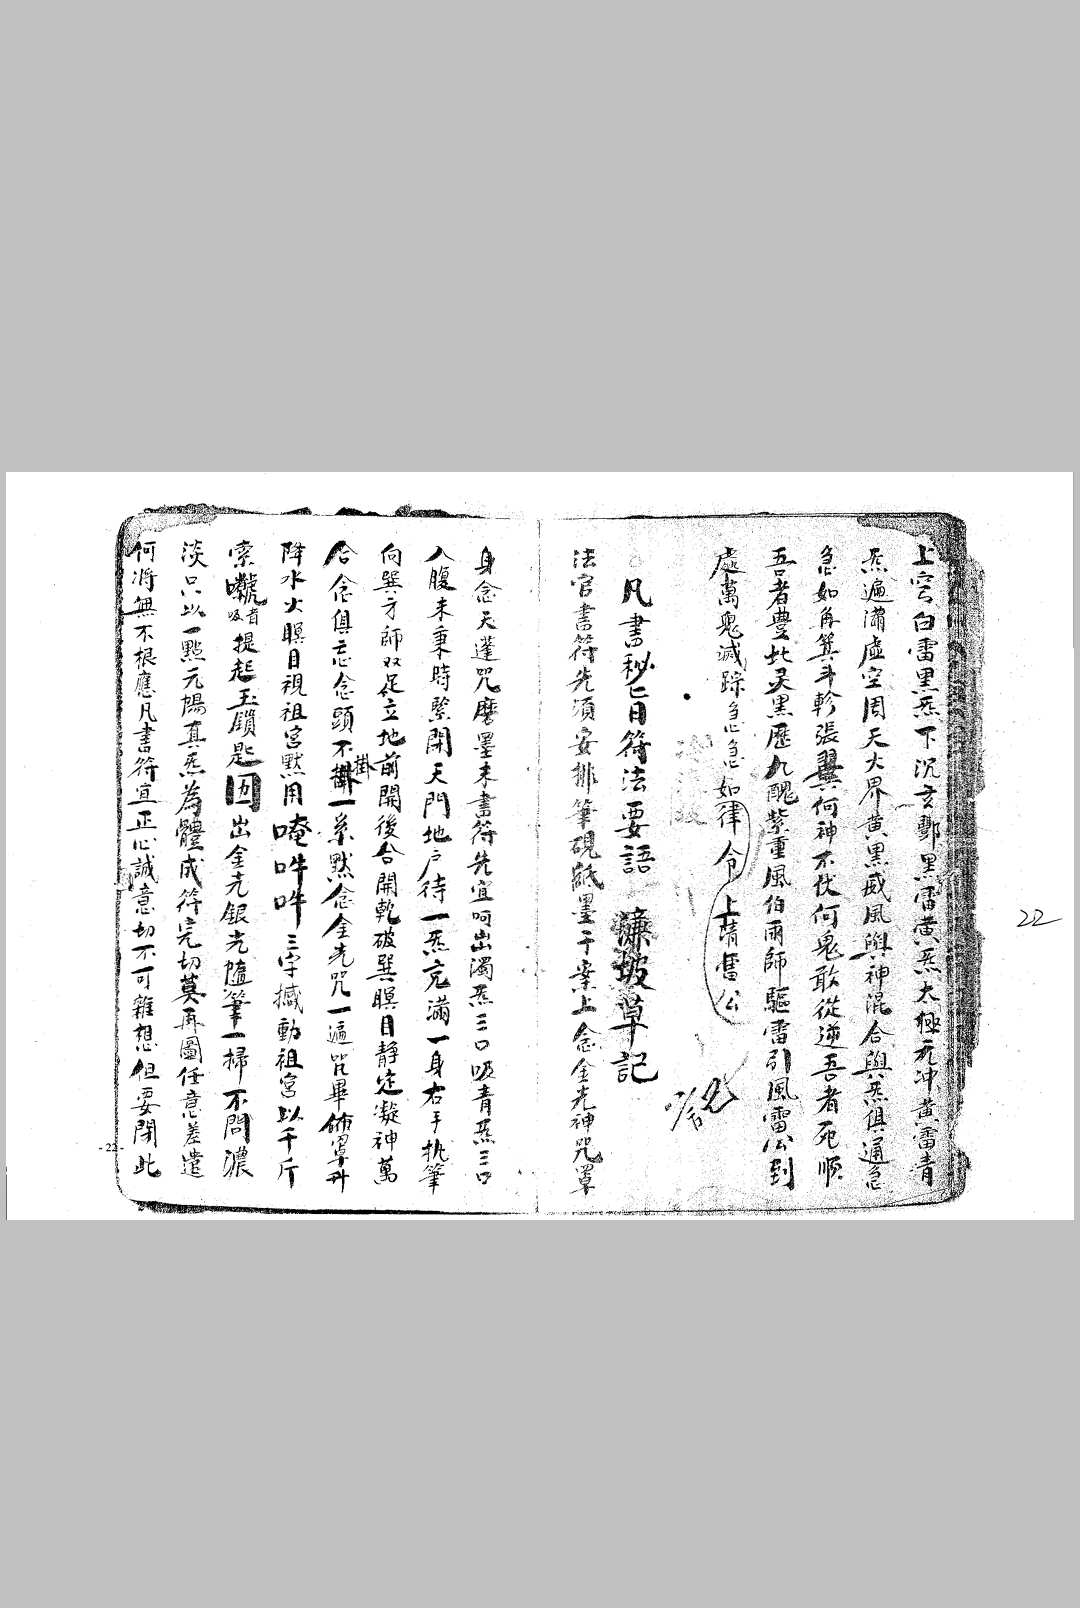 上穹白雷黑炁下沉玄酆黑雷黄炁太極元冲黄雷青
炁遍滿虛空周天大界黄黑威風與神混合與炁俱通急
急如角箕斗軫張翼何神不伏何鬼敢從逆吾者死順
吾者豊北灵黑歷九醜紫重風伯雨師驅雷引風雷公到
處萬鬼滅踪急急如律令
凡書秘旨符法要語 草記
法官書符先須安排筆硯紙墨于案上念金光神咒罩
身念天蓬咒磨墨未書符先宜呵出濁炁三口吸青炁三口
入腹未秉時緊閉天門地户待一炁充滿一身右手执筆
向巽方師双足立地前開後合開乾破巽瞑目静定凝神萬
合念俱忘念頭不掛一系默念金光咒一遍咒畢佈罡升
降水火瞑目視祖宮黙用唵吽吽三字撼動祖宮以千斤
索 吸者提起玉鎖匙 出金光銀光隨筆一掃不問濃
淡只以一點元陽真炁為體成符完切莫再圖任意差遣
何將無不根應凡書符宜正心誠意切不可雜想但要閉此
- 22 -
22